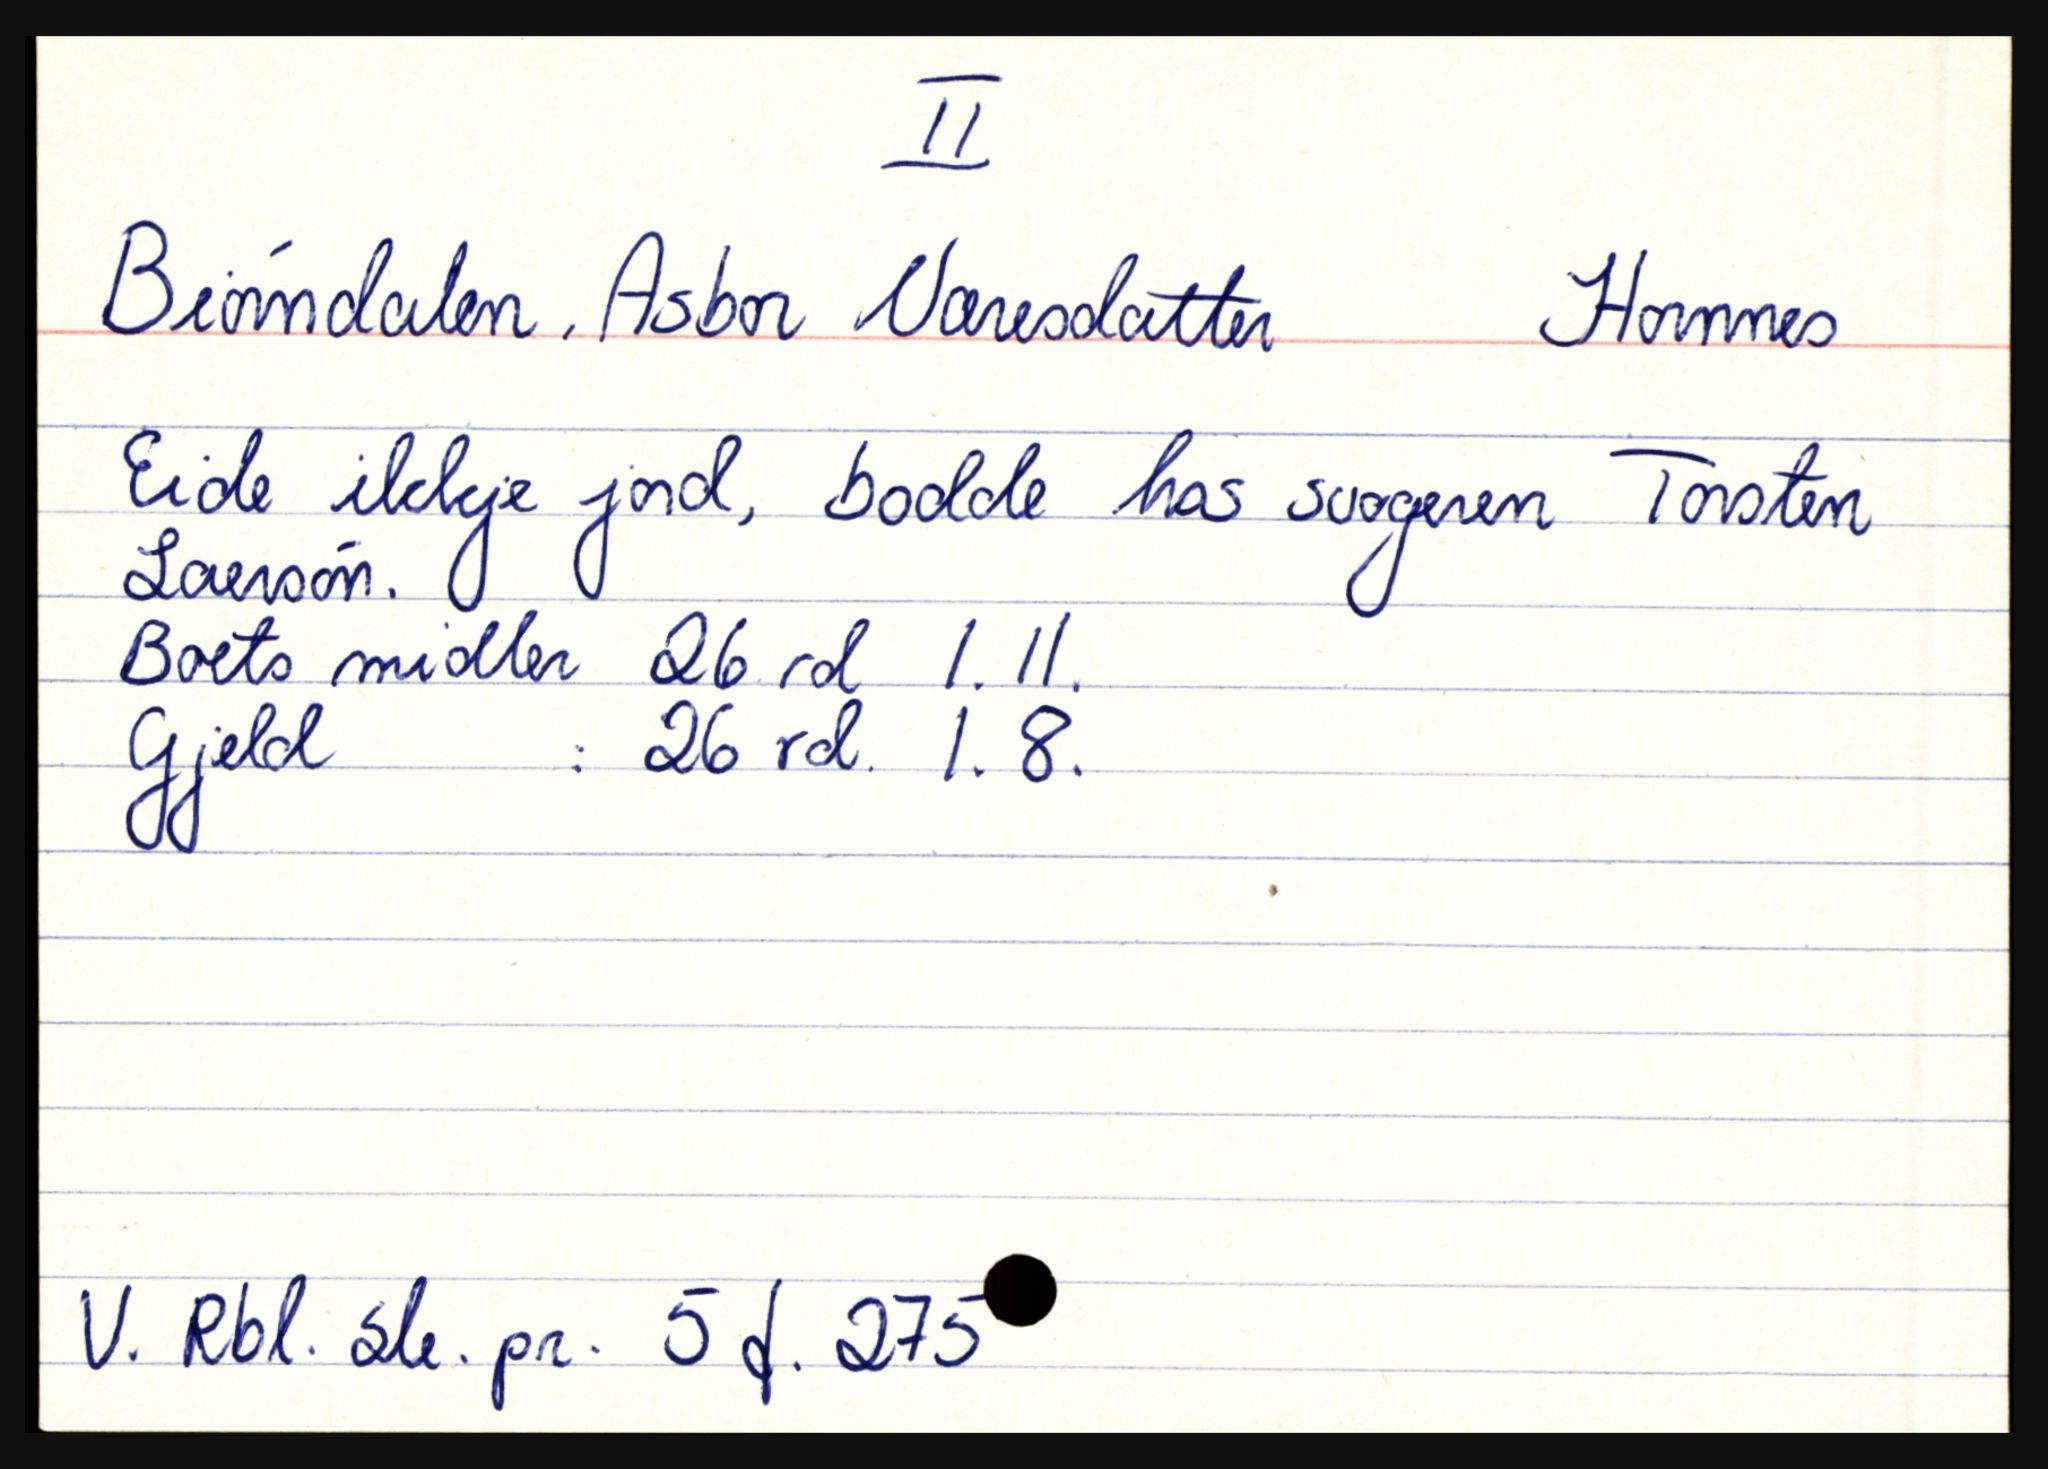 II
Biórndalen, Asbor Naresdatter Hornnes
Eide ikkje jord, bodde hos svogeren Torsten
Laersón.
Boets midler 26 rd 1. 11.
Gjeld : 26 rd. 1. 8.
V. Rbl. sk. pr. 5 f. 275